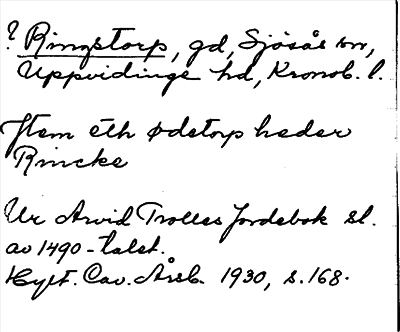 ? Ringstorp, gd, Sjösås sn,
Uppvidinge hd, Kronob. l.
Item eth ödetorp heder
Rincke
Ur Arvid Trolles Jordebok sl.
av 1490-talet.
Hylt. Cav. Årsb. 1930, s. 168.